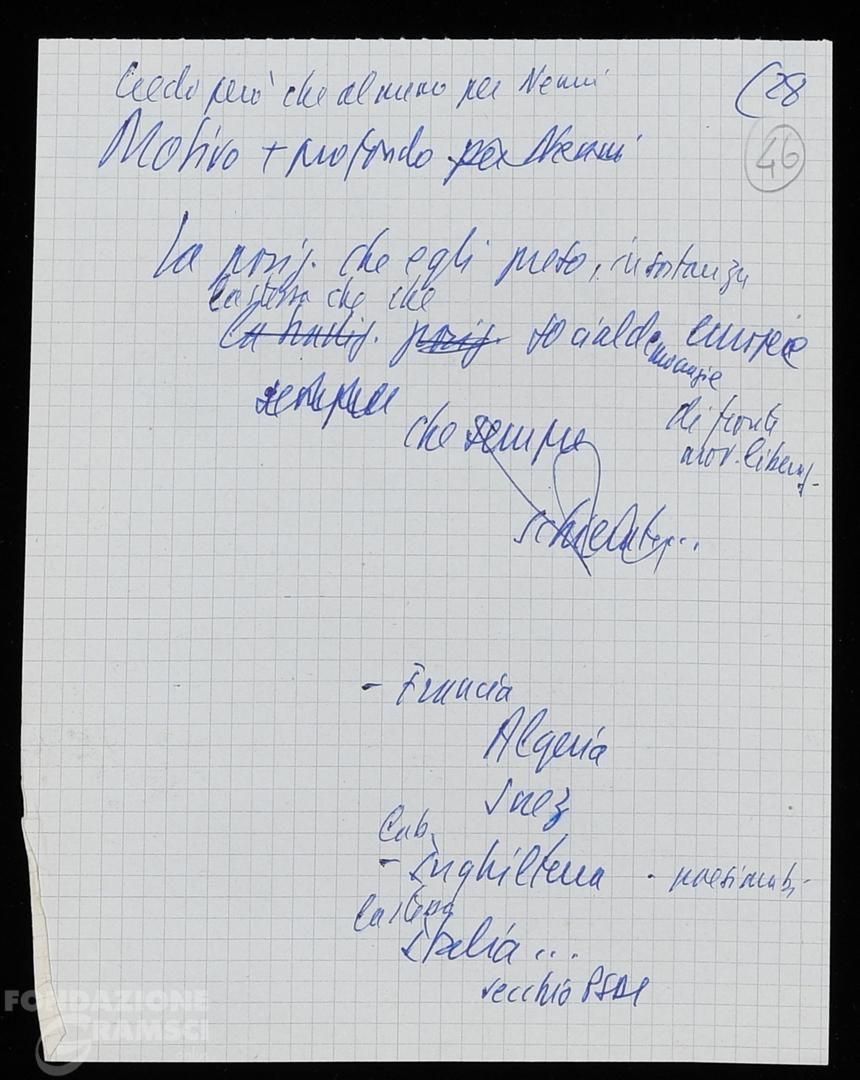 Credo però che almeno per Nenni
(28
46
Motivo + profondo per Nenni
La posiz. che egli preso, in sostanza
la stessa che che
la tradiz. posiz. socialdemocrazie europee
sempre
che sempre
di fronte
mov. liberaz.
schierate...
- Francia
Algeria
Suez
Lab.
- Inghilterra
La stessa
Italia...
vecchio PSDI
FONDAZIONE
GRAMSCI